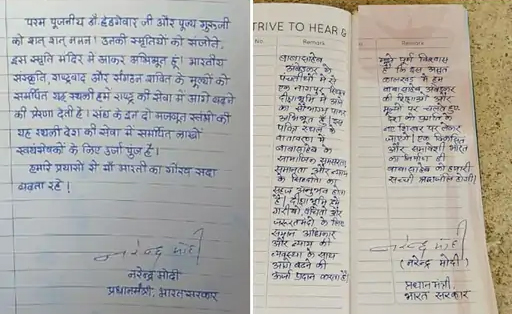 परम पूजनीय डॉ हेडगेवार जी और पूज्य गुरूजी
को शत् शत् नमन। उनकी स्मृतियों को सजोते,
इस स्मृति मंदिर में आकर अभिभूत हूं। भारतीय
संस्कृति, राष्ट्रवाद और संगठन शक्ति के मूल्यों को
समर्पित यह स्थली हमें राष्ट्र की सेवा में आगे बढ़ने
की प्रेरणा देती है। संघ के इन दो मजबूत स्तंभों की
यह स्थली देश की सेवा में समर्पित लाखों
स्वयंसेवकों के लिए ऊर्जा पुंज है।
हमारे प्रयासों से माँ भारती का गौरव सदा
बढ़ता रहे।
नरेन्द्र मोदी
नरेन्द्र मोदी
प्रधानमंत्री, भारत सरकार
TRIVE TO HEAR &
No. Remark
बाबासाहेब
अंबेडकर के
पंचतीर्थों में से
एक नागपुर स्थित
दीक्षाभूमि में आने
का सौभाग्य पाकर
अभिभूत हूं। इस
पवित्र स्थल के
वातावरण में
बाबासाहेब के
सामाजिक समरसता,
समानता और न्याय
के सिद्धांतों का
सहज अनुभव होता
है। दीक्षाभूमि हमें
गरीबों, वंचितों और
जरूरतमंदों के लिए
समान अधिकार
और न्याय की
व्यवस्था के साथ
आगे बढ़ने की
ऊर्जा प्रदान करता है।
No. Remark
मुझे पूर्ण विश्वास
है कि इस अमृत
कालखंड में हम
बाबासाहेब अंबेडकर
की शिक्षाओं और
मूल्यों पर चलते हुए
देश को प्रगति के
नए शिखर पर लेकर
जाएंगे। एक विकसित
और समावेशी भारत
का निर्माण ही
बाबासाहेब को हमारी
सच्ची श्रद्धांजलि होगी।
नरेन्द्र मोदी
(नरेन्द्र मोदी)
प्रधानमंत्री,
भारत सरकार